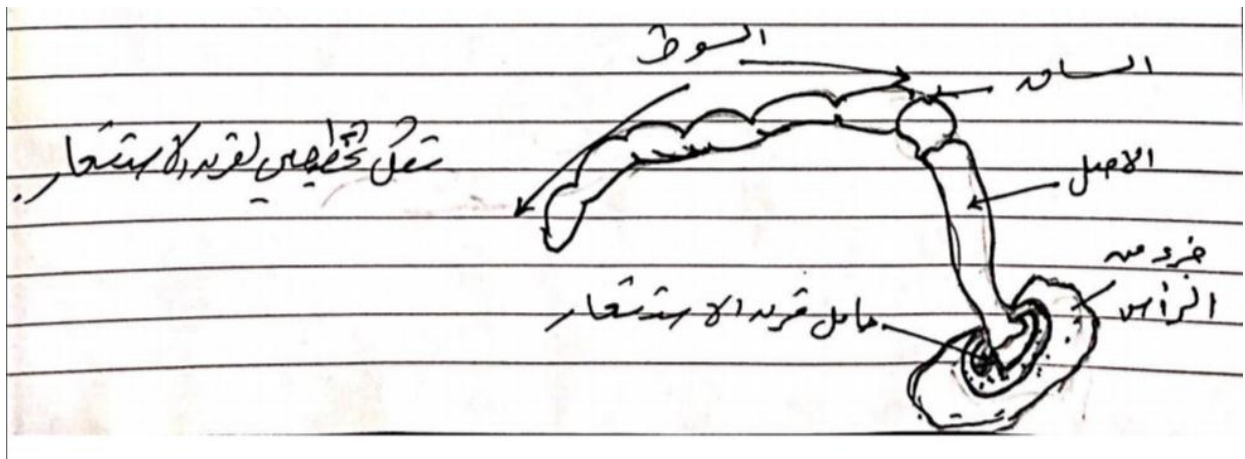 السوط
الساق
شكل تخطيطي لقرن الاستشعار
الاصل
جزء من
الرأس
حامل قرن الاستشعار